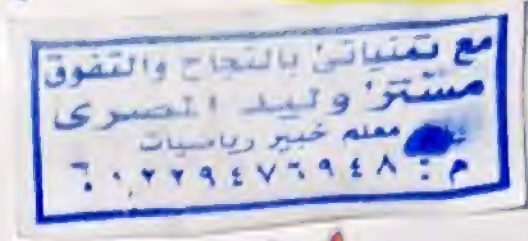 مع تمنياتى بالنجاح والتفوق
مستر/ وليد المصرى
معلم خبير رياضيات
م :